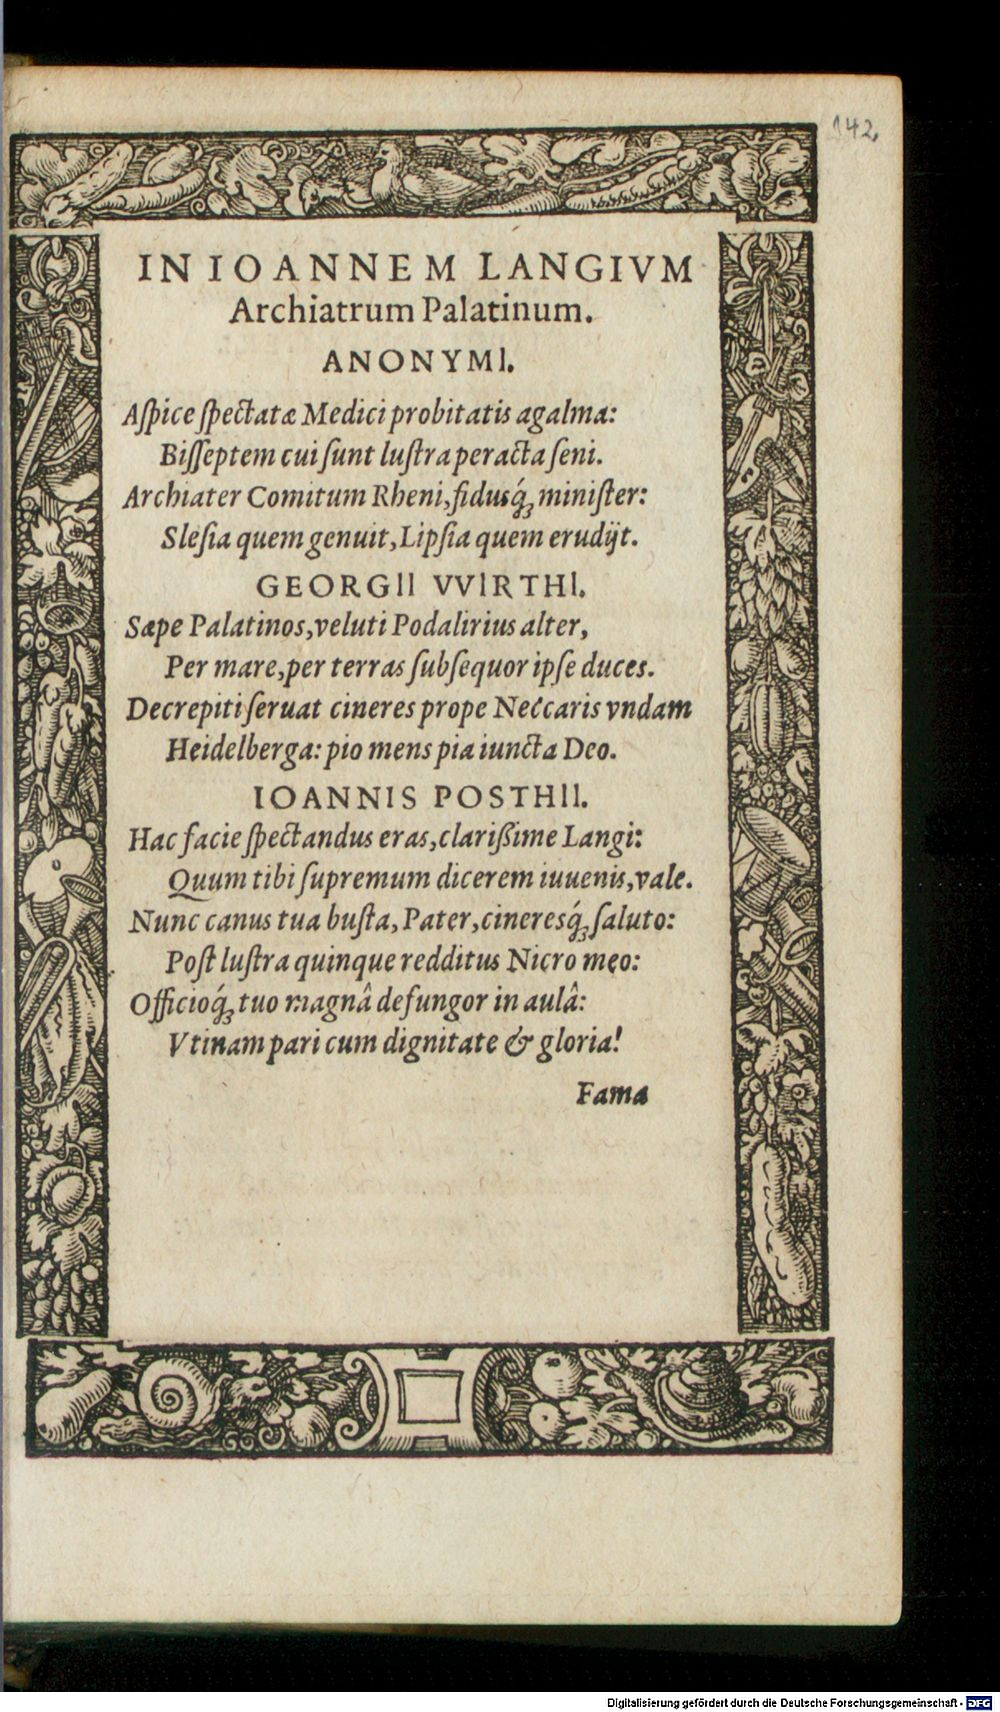 142.
IN IOANNEM LANGIVM
Archiatrum Palatinum.
ANONYMI.
Aſpice ſpectatæ Medici probitatis agalma:
Biſſeptem cui ſunt luſtra peracta ſeni.
Archiater Comitum Rheni, fidusq́ꝫ miniſter:
Sleſia quem genuit, Lipſia quem erudijt.
GEORGII VVIRTHI.
Sæpe Palatinos, veluti Podalirius alter,
Per mare, per terras ſubſequor ipſe duces.
Decrepiti ſeruat cineres prope Neccaris vndam
Heidelberga: pio mens pia iuncta Deo.
IOANNIS POSTHII.
Hac facie ſpectandus eras, clarißime Langi:
Quum tibi ſupremum dicerem iuuenis, vale.
Nunc canus tua buſta, Pater, cineresq́ꝫ ſaluto:
Poſt luſtra quinque redditus Nicro meo:
Officioq́ꝫ tuo magnâ defungor in aulâ:
Vtinam pari cum dignitate & gloria!
Fama
Digitalisierung gefördert durch die Deutsche Forschungsgemeinschaft - DFG